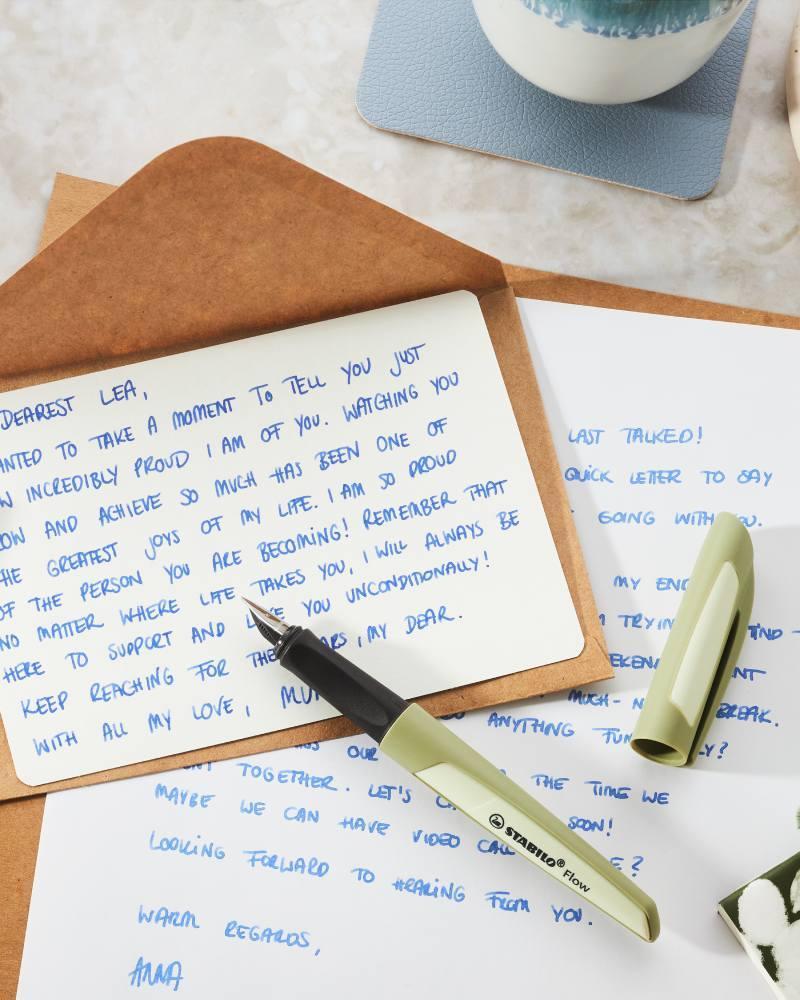 DEAREST LEA,
ANTED TO TAKE A MOMENT TO TELL YOU JUST
W INCREDIBLY PROUD I AM OF YOU. WATCHING YOU
OW AND ACHIEVE SO MUCH HAS BEEN ONE OF
HE GREATEST JOYS OF MY LIFE. I AM SO PROUD
OF THE PERSON YOU ARE BECOMING! REMEMBER THAT
NO MATTER WHERE LIFE TAKES YOU, I WILL ALWAYS BE
HERE TO SUPPORT AND YOU UNCONDITIONALLY!
KEEP REACHING FOR THE ARS, MY DEAR.
WITH ALL MY LOVE, MU
LAST TALKED!
QUICK LETTER TO SAY
GOING WITH YOU.
MY END
TRYIN FIND
EKEN NT
MUCH- N BREAK.
ANYTHING FUN LY?
OUR THE TIME WE
TOGETHER. LET'S SOON!
MAYBE WE CAN HAVE VIDEO CALL E?
LOOKING FORWARD TO HEARING FROM YOU.
WARM REGARDS,
ANNA
STABILO® Flow